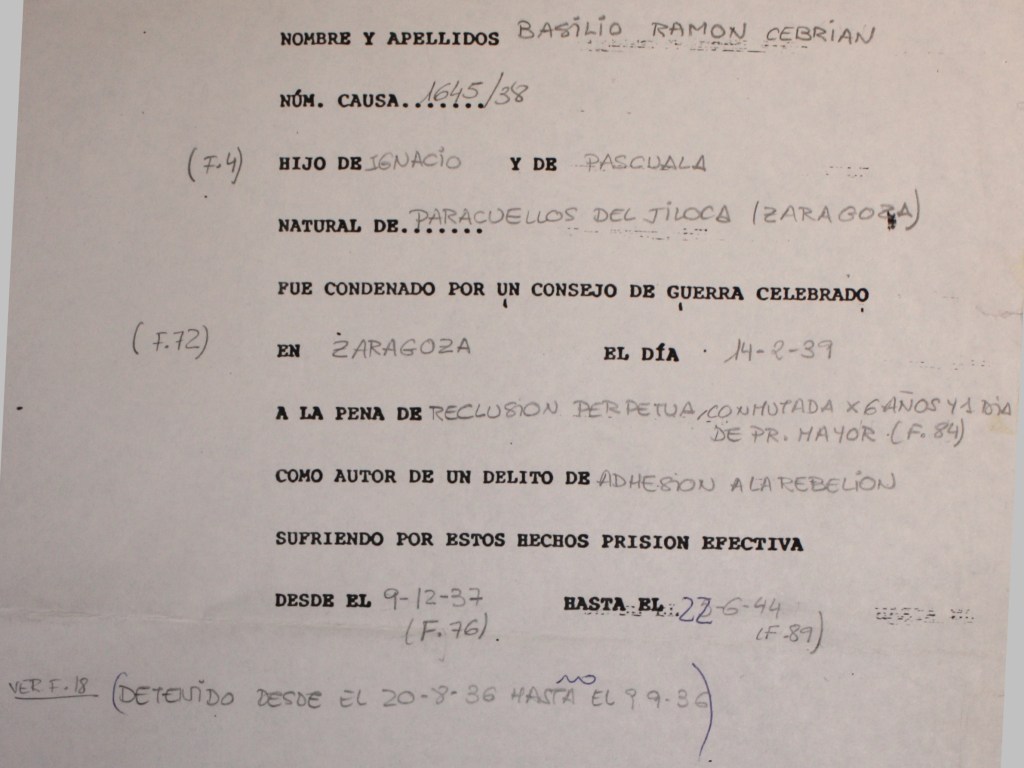 NOMBRE Y APELLIDOS BASILIO RAMON CEBRIAN
NÚM. CAUSA....... 1645/38
(F.4) HIJO DE IGNACIO Y DE PASCUALA
NATURAL DE....... PARACUELLOS DEL JILOCA (ZARAGOZA)
FUE CONDENADO POR UN CONSEJO DE GUERRA CELEBRADO
(F.72) EN ZARAGOZA EL DÍA 14-2-39
A LA PENA DE RECLUSION PERPETUA, CONMUTADA X 6 AÑOS Y 1 DIA
DE PR. MAYOR (F. 84)
COMO AUTOR DE UN DELITO DE ADHESION A LA REBELION
SUFRIENDO POR ESTOS HECHOS PRISION EFECTIVA
DESDE EL 9-12-37 HASTA EL 22-6-44
(F.76) (F-89)
NO
VER F.18 (DETENIDO DESDE EL 20-8-36 HASTA EL 9.9-36)